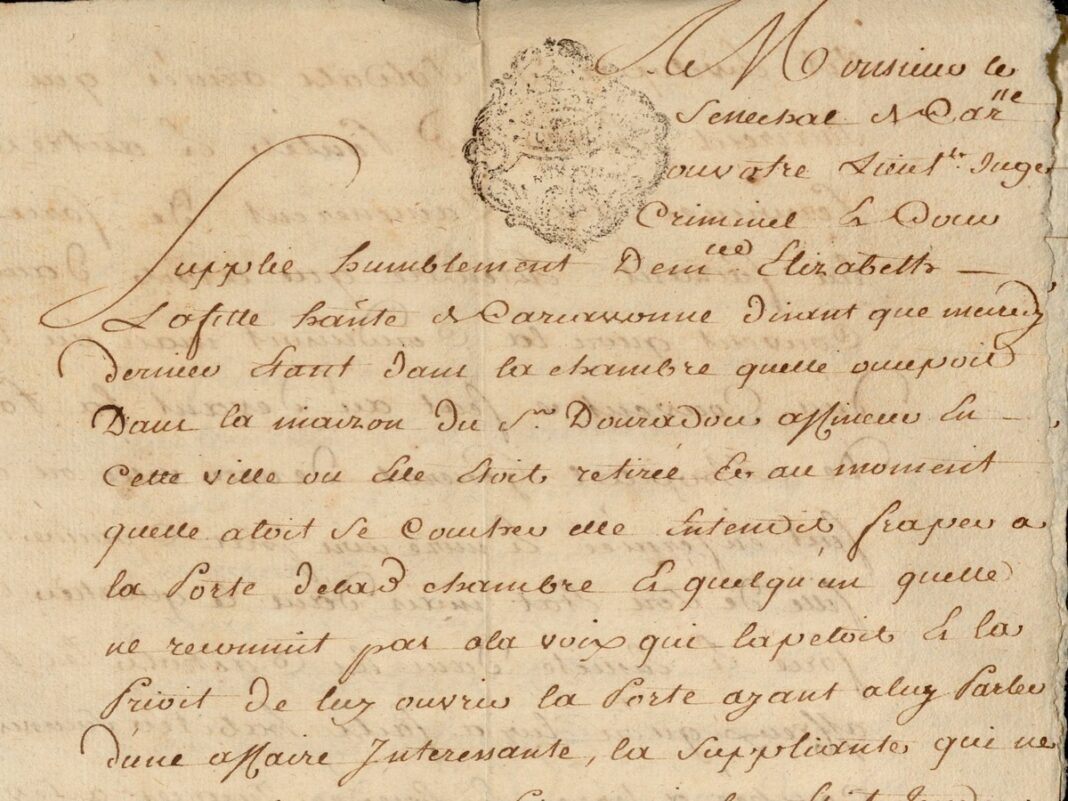 A Monsieur le
Senechal de Carne
ou votre Lieutt. Juge
Criminel Et Doux
Supplie humblement Demlle Elizabeth
Lafitte hânte de Carcassonne disant que mercredy
dernier Etant dans la chambre quelle occupoit
Dans la maizon du Sr. Douradou affineur En
Cette ville ou Elle Etoit retirée Et au moment
quelle aloit se Coucher elle Entendit fraper a
la Porte de lad chambre Et quelqu'un quelle
ne reconnut pas a la voix qui lapeloit Et la
Prioit de luy ouvrir la Porte ayant a luy Parler
d'une affaire Interessante, la Suppliante qui ne